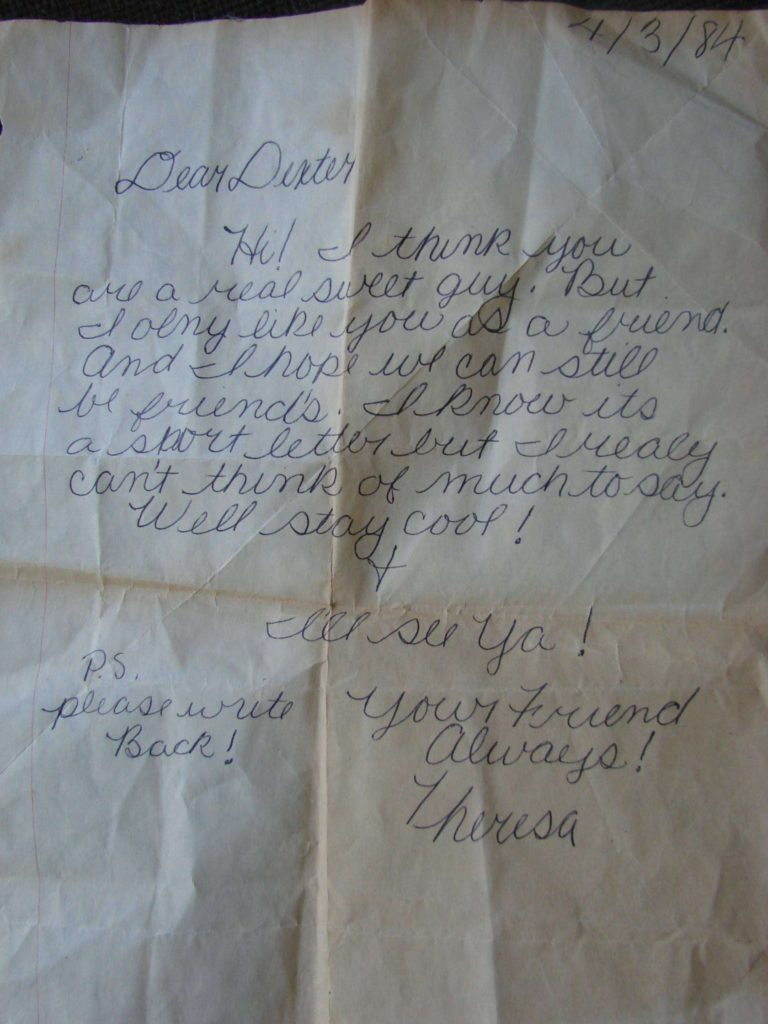 4/3/84
Dear Dexter
Hi! I think you
are a real sweet guy. But
I olny like you as a friend.
And I hope we can still
be friend's. I know its
a short letter but I realy
can't think of much to say.
Well stay cool!
+
I'll see Ya!
P.S.
please write
Back!
Your Friend
Always!
Theresa